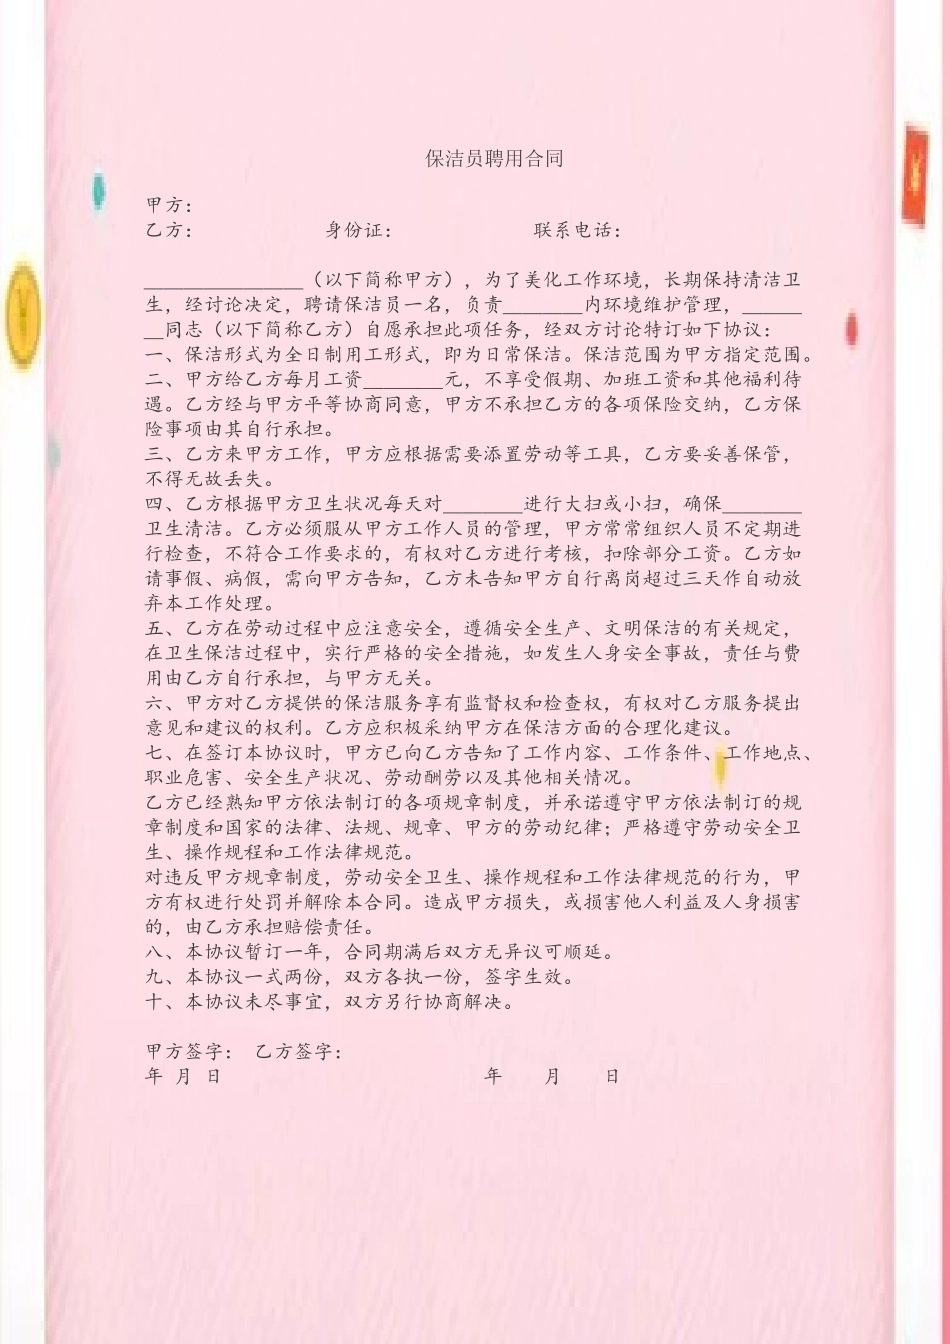 保洁员聘用合同
甲方：
乙方： 身份证： 联系电话：
________________（以下简称甲方），为了美化工作环境，长期保持清洁卫
生，经讨论决定，聘请保洁员一名，负责________内环境维护管理，______
__同志（以下简称乙方）自愿承担此项任务，经双方讨论特订如下协议：
一、保洁形式为全日制用工形式，即为日常保洁。保洁范围为甲方指定范围。
二、甲方给乙方每月工资________元，不享受假期、加班工资和其他福利待
遇。乙方经与甲方平等协商同意，甲方不承担乙方的各项保险交纳，乙方保
险事项由其自行承担。
三、乙方来甲方工作，甲方应根据需要添置劳动等工具，乙方要妥善保管，
不得无故丢失。
四、乙方根据甲方卫生状况每天对________进行大扫或小扫，确保________
卫生清洁。乙方必须服从甲方工作人员的管理，甲方常常组织人员不定期进
行检查，不符合工作要求的，有权对乙方进行考核，扣除部分工资。乙方如
请事假、病假，需向甲方告知，乙方未告知甲方自行离岗超过三天作自动放
弃本工作处理。
五、乙方在劳动过程中应注意安全，遵循安全生产、文明保洁的有关规定，
在卫生保洁过程中，实行严格的安全措施，如发生人身安全事故，责任与费
用由乙方自行承担，与甲方无关。
六、甲方对乙方提供的保洁服务享有监督权和检查权，有权对乙方服务提出
意见和建议的权利。乙方应积极采纳甲方在保洁方面的合理化建议。
七、在签订本协议时，甲方已向乙方告知了工作内容、工作条件、工作地点、
职业危害、安全生产状况、劳动酬劳以及其他相关情况。
乙方已经熟知甲方依法制订的各项规章制度，并承诺遵守甲方依法制订的规
章制度和国家的法律、法规、规章、甲方的劳动纪律；严格遵守劳动安全卫
生、操作规程和工作法律规范。
对违反甲方规章制度，劳动安全卫生、操作规程和工作法律规范的行为，甲
方有权进行处罚并解除本合同。造成甲方损失，或损害他人利益及人身损害
的，由乙方承担赔偿责任。
八、本协议暂订一年，合同期满后双方无异议可顺延。
九、本协议一式两份，双方各执一份，签字生效。
十、本协议未尽事宜，双方另行协商解决。
甲方签字： 乙方签字：
年 月 日 年 月 日